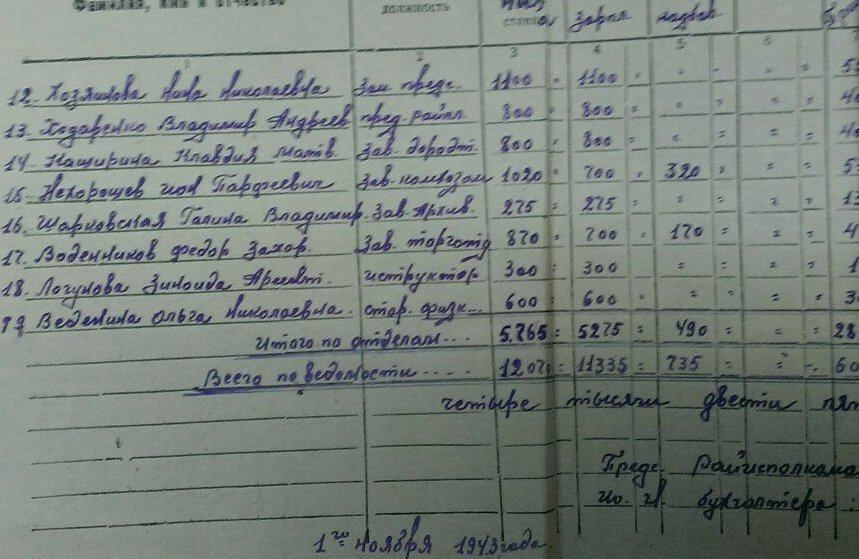 Фамилия, имя и отчество должность ставка зарпл надбав
1 2 3 4 5 6 7
12. Хозяинова Нина Николаевна Зам преде. 1100 = 1100 = = = = =
13. Ходаренко Владимир Андреев пред. райпл 800 = 800 = = = = =
14. Каширина Клавдия Матв. Зав. дородт. 800 = 800 = = = = =
15. Нехорошев Ион Парфеевич Зав. коммозом 1020 = 700 = 320 = = =
16. Шарковская Галина Владимир. Зав. Архив. 275 = 275 = = = = =
17. Воденников Федор Захар. Зав. торготд 870 = 700 = 170 = = =
18. Логунова Зиноида Арсент. иструктор 300 = 300 = = = = =
19 Веденина Ольга Николаевна. стар. физк... 600 = 600 = = = = =
Итого по отделам... 5.765 = 5275 = 490 = = = 28
Всего по ведомости.... 1207 = 11335 = 735 = = = 60
четыре тысячи двести пят
Преде. Райисполкома
ио. гл. бухгалтера:
1го ноября 1943 года.